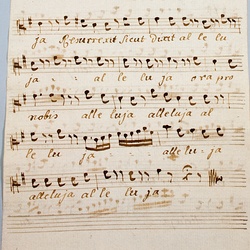 ja Resurrexit sicut dixit al le lu
ja - - al le lu ja ora pro
nobis alle luja alleluja al
le lu ja - - alle lu ja
alleluja al le lu ja